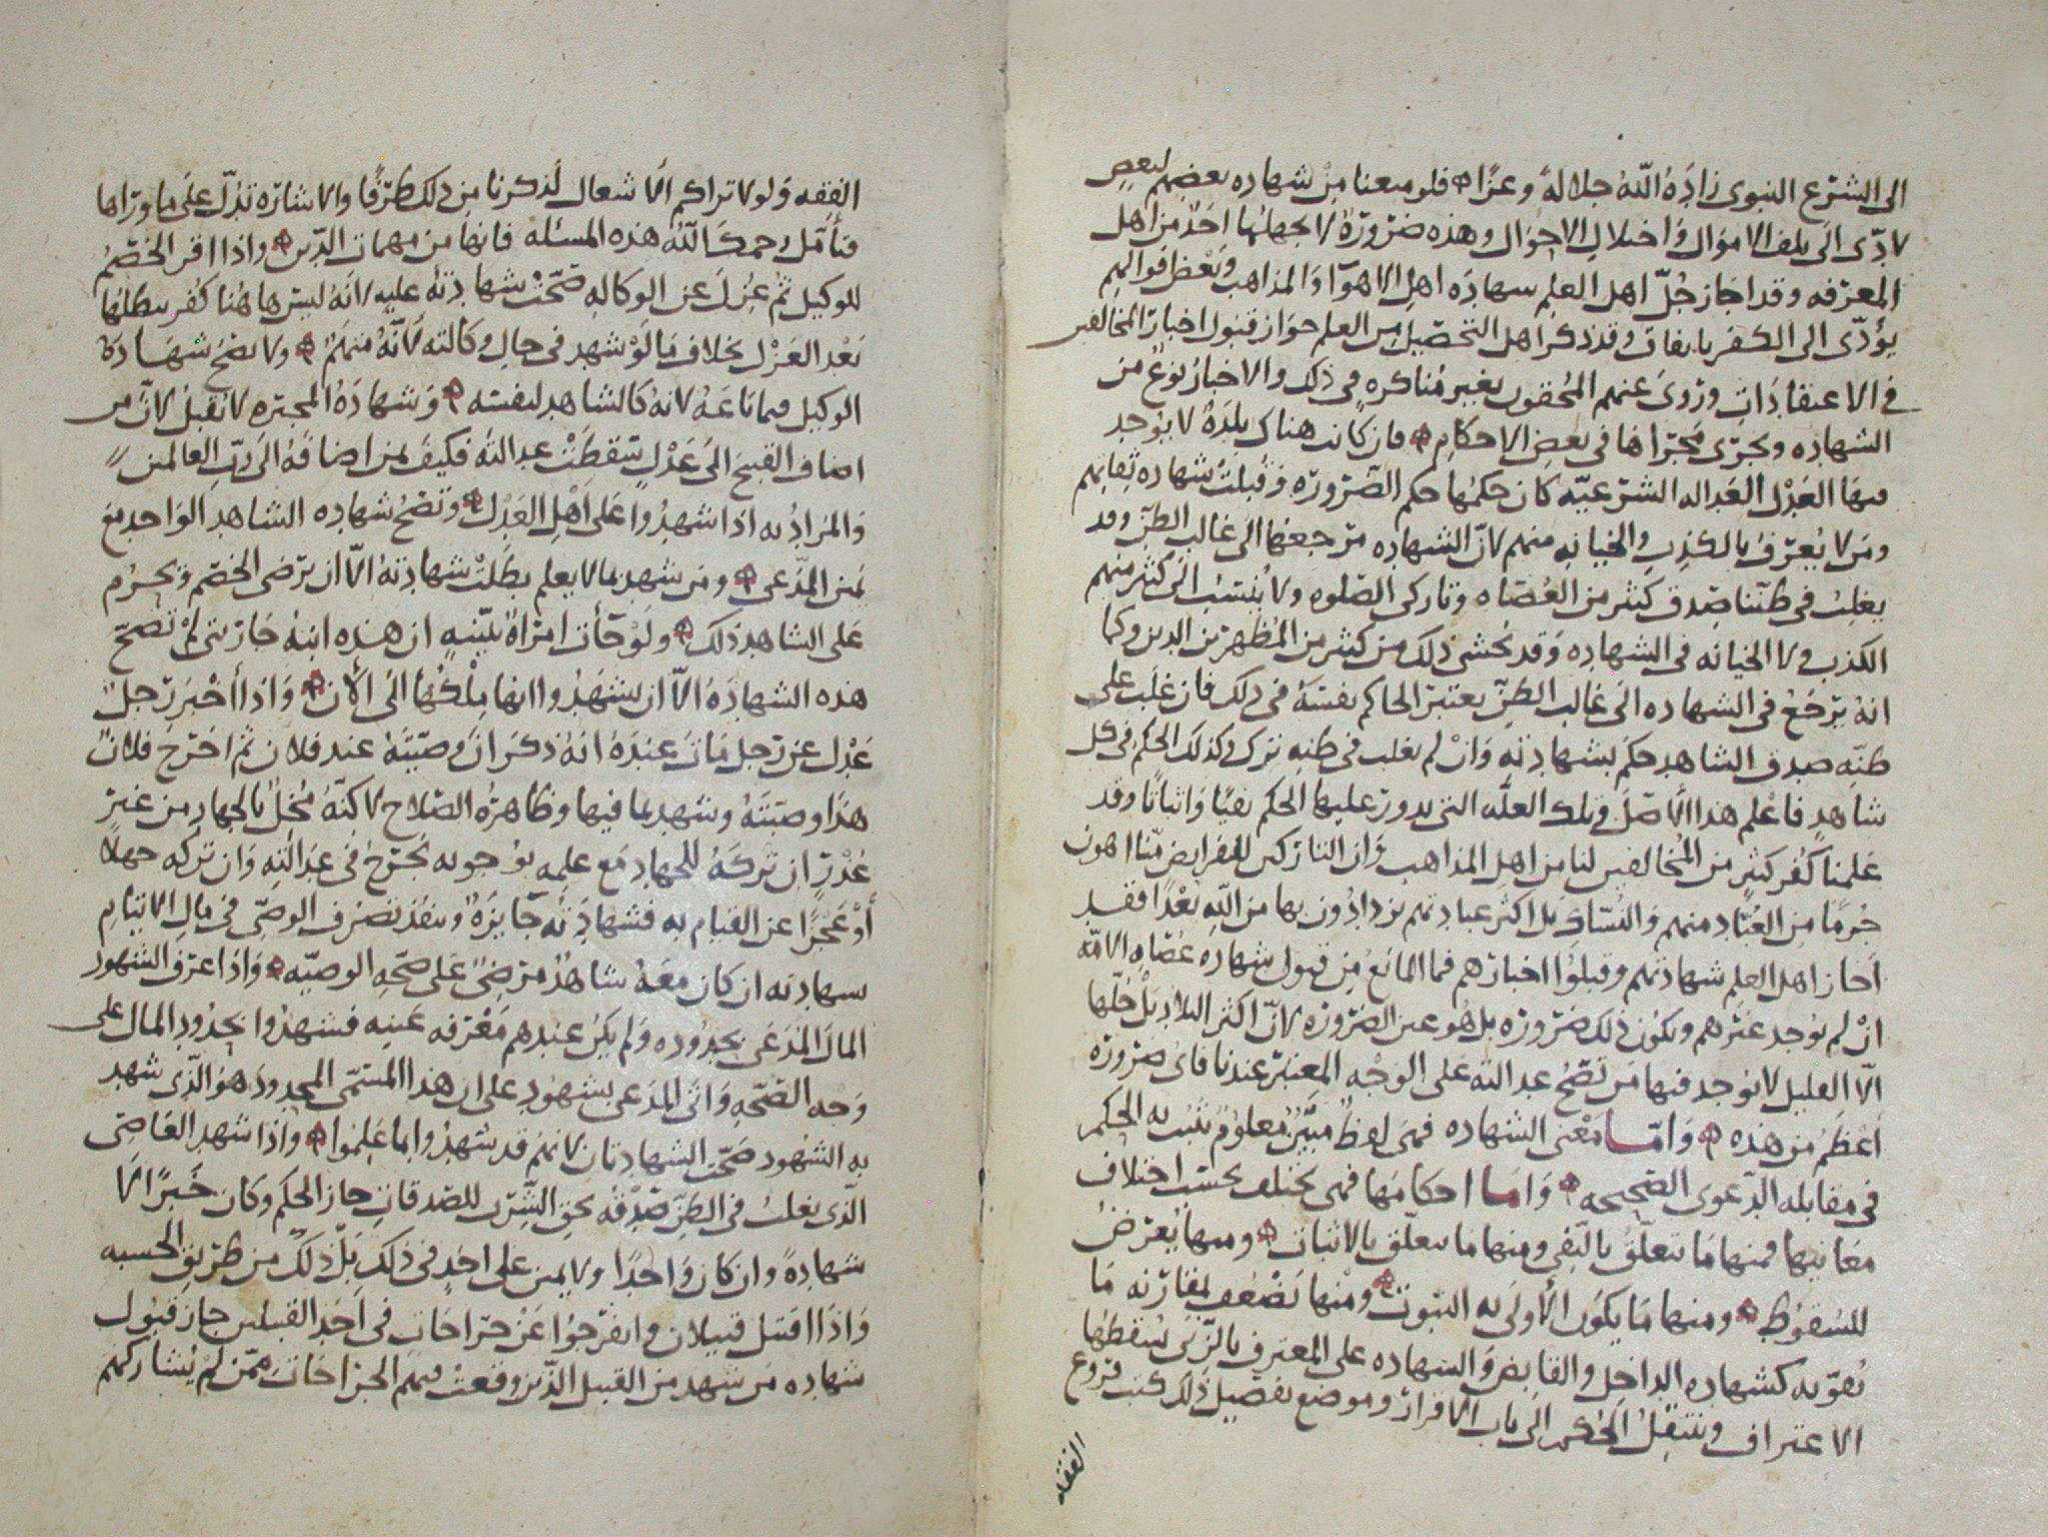 الى الشرع النبوى زاده الله جلالة وعزا فلو منعنا من شهاده بعضهم لبعض
لادى الى تلف الاموال واختلال الاحوال وهذه ضرورة لا يجهلها احد من اهل
المعرفه وقد اجاز جل اهل العلم شهادة اهل الاهوا والمذاهب وبعض اقوالهم
يؤدى الى الكفر باتفاق وقد ذكر اهل التحصيل من العلم جواز قبول اخبار المخالفين
فى الاعتقادات وروى عنهم المحقون بغير مناكره فى ذلك والاخبار نوع من
الشهاده وتجرى مجراها فى بعض الاحكام فان كانت هناك بلدة لا يوجد
فيها العدل العداله الشرعيه كان حكمها حكم الضروره وقبلت شهاده ثقاتهم
ومن لا يعرف بالكذب والخيانه منهم لان الشهاده مرجعها الى غالب الظن وقد
يغلب فى ظننا صدق كثير من العصاه وتاركى الصلوه ولا ينسب الى كثير منهم
الكذب ولا الخيانه فى الشهاده وقد نخشى ذلك من كثير من المظهرين الدين وكما
انه يرجع فى الشهاده الى غالب الظن يعتبر الحاكم نفسه فى ذلك فان غلب على
ظنه صدق الشاهد حكم بشهادته وان لم يغلب فى ظنه ترك وكذلك الحكم فى كل
شاهد فاعلم هذا الأصل وتلك العله التى يدور عليها الحكم نفيا واثباتا وقد
علمنا كفر كثير من المخالفين لنا من اهل المذاهب وان التاركين للفرايض منا اهون
جرما من العباد منهم والنساك بل اكثر عبادتهم يزدادون بها من الله بعدا فقد
اجاز اهل العلم شهادتهم وقبلوا اخبارهم فما المانع من قبول شهاده عصاه الامه
ان لم يوجد غيرهم ويكون ذلك ضروره بل هو عين الضروره لان اكثر البلاد بل جلها
الا القليل لا يوجد فيها من تصح عدالته على الوجه المعتبر عندنا فاى ضروره
اعظم من هذه واما معنى الشهاده فهى لفظ مبين معلوم يثبت به الحكم
فى مقابله الدعوى الصحيحه واما احكامها فهى تختلف بحسب اختلاف
معانيها فمنها ما يتعلق بالنفى ومنها ما يتعلق بالاثبات ومنها يعرض
للسقوط ومنها ما يكون الأولى به الثبوت ومنها تضعف لمقارنه ما
تقو به كشهاده الداخل والقابض والشهاده على المعترف بالزنى يسقطها
الاعتراف وينتقل الحكم الى باب الاقرار وموضع تفصيل ذلك كتب فروع
الفقه
الفقه ولولا تراكم الأشغال لذكرنا من ذلك طرفا والاشارة تدل على ما وراها
فتأمل رحمك الله هذه المسئله فانها من مهمات الدين واذا اقر الخصم
للوكيل ثم عزل عن الوكاله صحت شهادته عليه لانه ليس هاهنا كفر يبطلها
بعد العزل بخلاف ما لو شهد فى حال وكالته لأنه متهم ولا تصح شهادة
الوكيل فيما باعه لانه كالشاهد لنفسه وشهادة المجبره لا تقبل لان من
اضاف القبيح الى عدل سقطت عدالته فكيف لمن اضافه الى رب العالمين
والمراد به اذا شهدوا على اهل العدل وتصح شهاده الشاهد الواحد مع
يمين المدعى ومن شهد بما لا يعلم بطلت شهادته الا ان يرضى الخصم ويحرم
على الشاهد ذلك ولو جأت امراة ببينه ان هذه ابنه جاريتى لم تصح
هذه الشهادة الا ان يشهدوا انها ملكها الى الأن واذا أخبر رجل
عدل عن رجل مات عنده انه ذكر ان وصيته عند فلان ثم اخرج فلان
هذا وصيته وشهد بما فيها وظاهره الصلاح لاكنه مخل بالجهاد من غير
عذر ان تركه للجهاد مع علمه بوجوبه يجرح فى عدالته وان تركه جهلا
أو عجزا عن القيام به فشهادته جايزة وينفذ تصرف الوصى فى مال الايتام
بشهادته ان كان معه شاهد مرضى على صحه الوصيه واذا عرف الشهود
المال المدعى بحدوده ولم يكن عندهم معرفه عينه فشهدوا بحدود المال على
وجه الصحه واتى المدعى بشهود على ان هذا المسمى المحدود هو الذى شهد
به الشهود صحت الشهادتان لانهم قد شهدوا بما علموا واذا شهد القاضى
الذى يغلب فى الظن صدقه بحق الشرب للصدقات جاز الحكم وكان خبرا لا
شهادة وان كان واحدا ولا يمين على احد فى ذلك بل ذلك من طريق الحسبه
واذا اقتتل قبيلان وانفرجوا عن جراحات فى احد القبيلين جاز قبول
شهاده من شهد من القبيل الذين وقعت فيهم الجراحات ممن لم يشاركهم